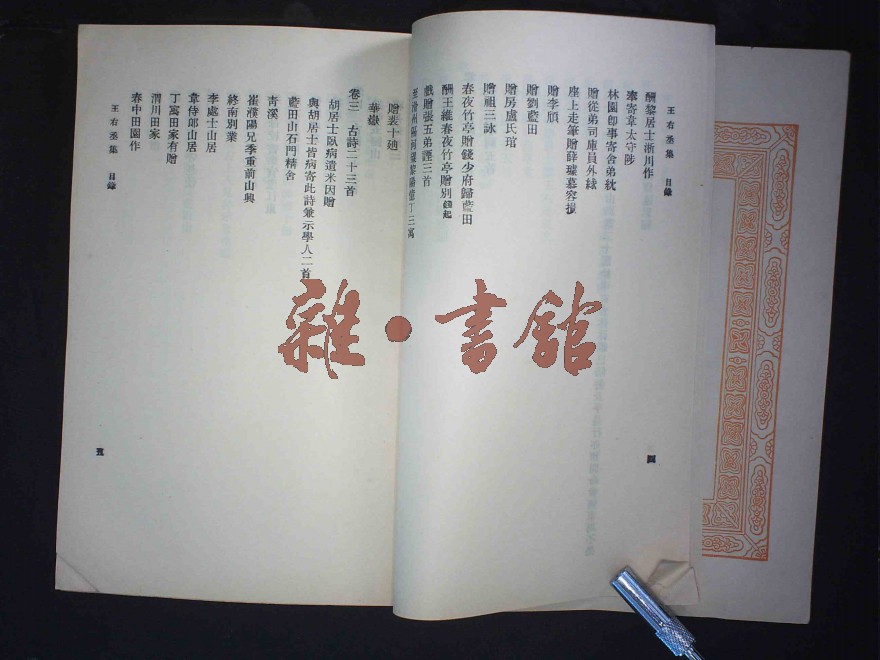 王右丞集 目錄
酬黎居士淅川作
奉寄韋太守陟
林園卽事寄舍弟紞
贈從弟司庫員外絿
座上走筆贈薛璩慕容損
贈李頎
贈劉藍田
贈房盧氏琯
贈祖三詠
春夜竹亭贈錢少府歸藍田
酬王維春夜竹亭贈別錢起
戲贈張五弟諲三首
至滑州隔河望黎陽憶丁三寓
四
贈裴十廸
華嶽
卷三 古詩二十三首
胡居士臥病遺米因贈
與胡居士皆病寄此詩兼示學人二首
藍田山石門精舍
靑溪
崔濮陽兄季重前山興
終南別業
李處士山居
韋侍郎山居
丁寓田家有贈
渭川田家
春中田園作
王右丞集 目錄
五
雜·書館